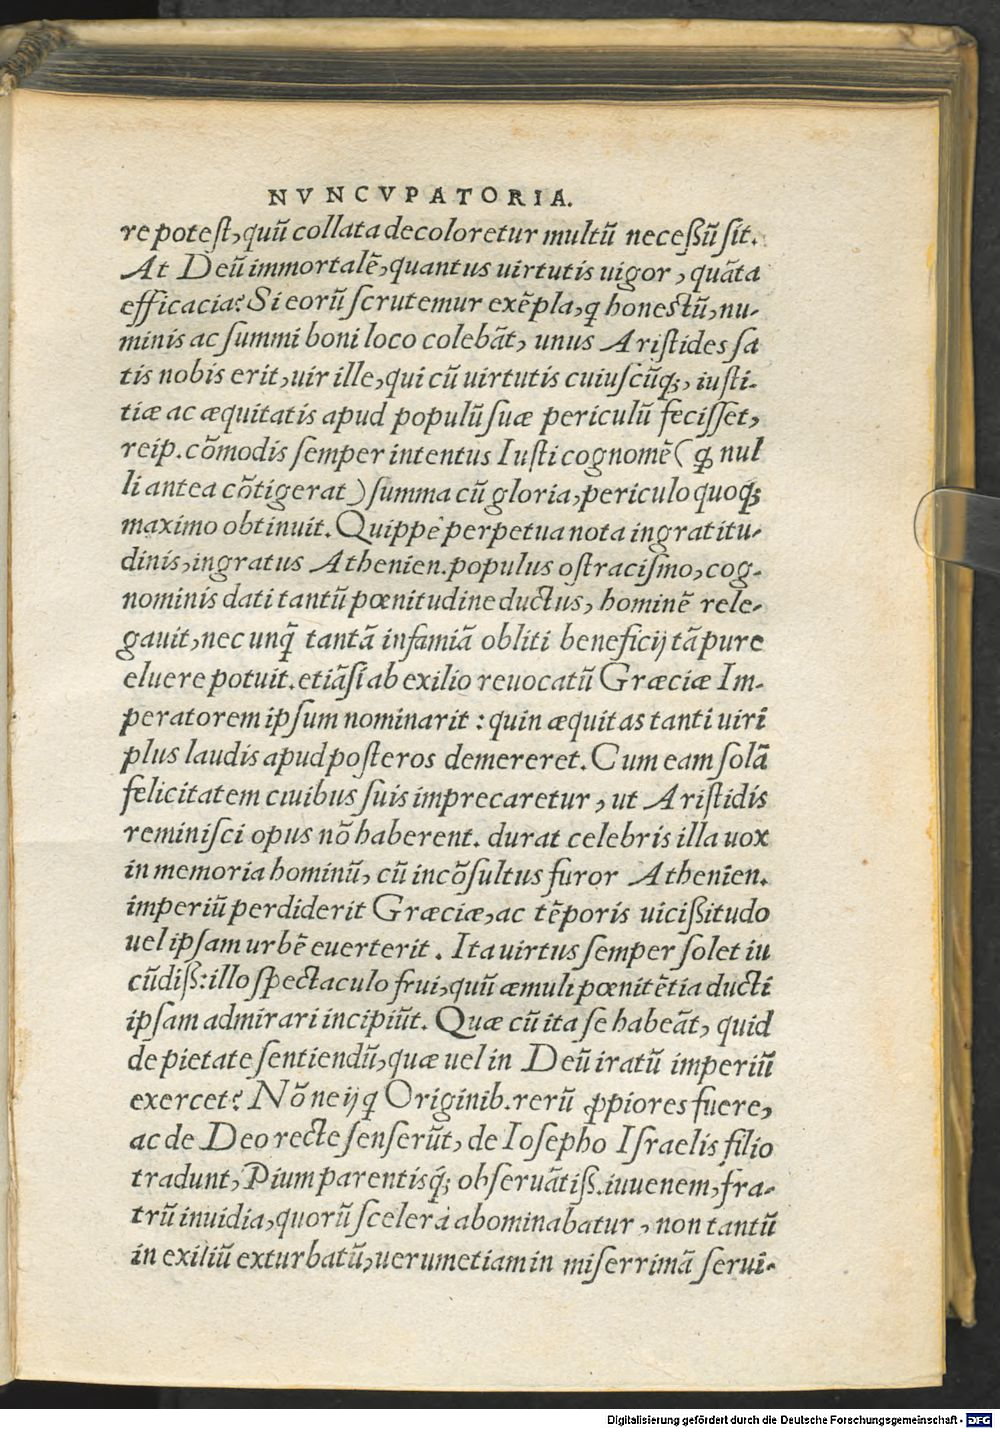 NVNCVPATORIA.
re potest, quū collata decoloretur multū neceßū sit.
At Deū immortalē, quantus uirtutis uigor, quāta
efficacia? Si eorū scrutemur exēpla, q honestū, nu-
minis ac summi boni loco colebāt, unus Aristides sa
tis nobis erit, uir ille, qui cū uirtutis cuiuscūq;, iusti-
tiæ ac æquitatis apud populū suæ periculū fecisset,
reip. cōmodis semper intentus Iusti cognomē (ꝙ nul
li antea cōtigerat) summa cū gloria, periculo quoq;
maximo obtinuit. Quippe perpetua nota ingratitu-
dinis, ingratus Athenien. populus ostracismo, cog-
nominis dati tantū pœnitudine ductus, hominē rele-
gauit, nec unq̄ tantā infamiā obliti beneficij tā pure
eluere potuit. etiāsi ab exilio reuocatū Græciæ Im-
peratorem ipsum nominarit: quin æquitas tanti uiri
plus laudis apud posteros demereret. Cum eam solā
felicitatem ciuibus suis imprecaretur, ut Aristidis
reminisci opus nō haberent. durat celebris illa uox
in memoria hominū, cū incōsultus furor Athenien.
imperiū perdiderit Græciæ, ac tēporis uicißitudo
uel ipsam urbē euerterit. Ita uirtus semper solet iu
cūdiß: illo spectaculo frui, quū æmuli pœnitētia ducti
ipsam admirari incipiūt. Quæ cū ita se habeāt, quid
de pietate sentiendū, quæ uel in Deū iratū imperiū
exercet? Nōne ij q Originib. rerū ꝓpiores fuere,
ac de Deo recte senserūt, de Iosepho Israelis filio
tradunt, Pium parentisq́; obseruātiß. iuuenem, fra-
trū inuidia, quorū scelera abominabatur, non tantū
in exiliū exturbatū, uerumetiam in miserrimā serui-
Digitalisierung gefördert durch die Deutsche Forschungsgemeinschaft - DFG